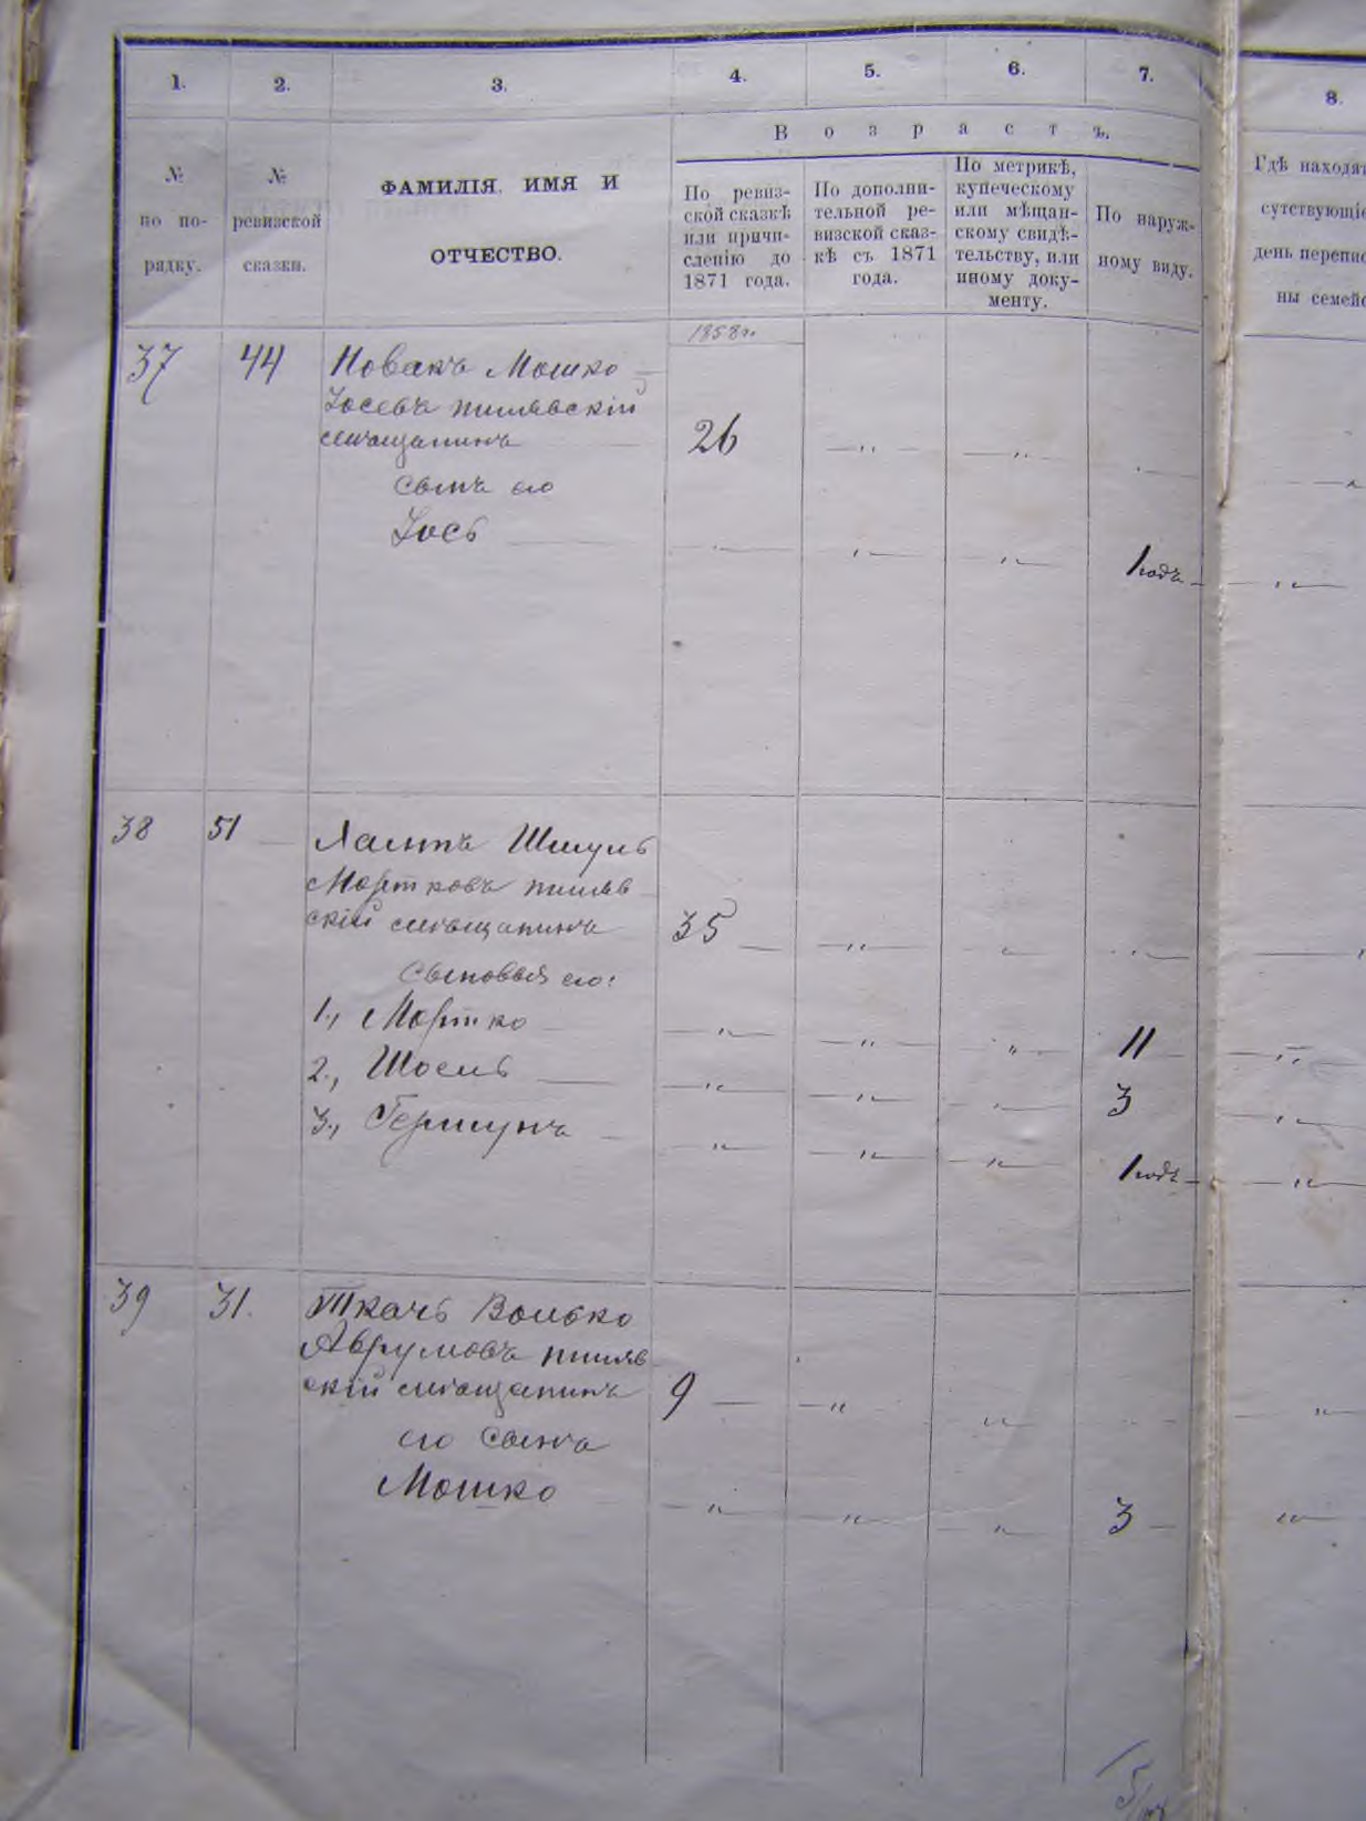 1. 2. 3. 4. 5. 6. 7. 8.
Возрастъ.
№ по порядку.
№ ревизской сказки.
ФАМИЛІЯ, ИМЯ И
ОТЧЕСТВО.
По ревиз-
ской сказкѣ
или причи-
сленію до
1871 года.
По дополни-
тельной ре-
визской сказ-
кѣ съ 1871
года.
По метрикѣ,
купеческому
или мѣщан-
скому свидѣ-
тельству, или
иному доку-
менту.
По наруж-
ному виду.
Гдѣ находят
сутствующіе
день перепис
ны семейс
1858 г.
37 44 Новакъ Мошко
Іосевъ пилявскій
мѣщанинъ 26
сынъ его
Іось 1 годъ
38 51 Шмуль
Мортковъ пиляв
скій мѣщанинъ 35
сыновья его:
1., Мортко 11
2., Шоель 3
3., Гершунъ 1 годъ
39 31. Ткачъ Волько
Аврумовъ пиляв
скій мѣщанинъ 9
его сынъ
Мошко 3